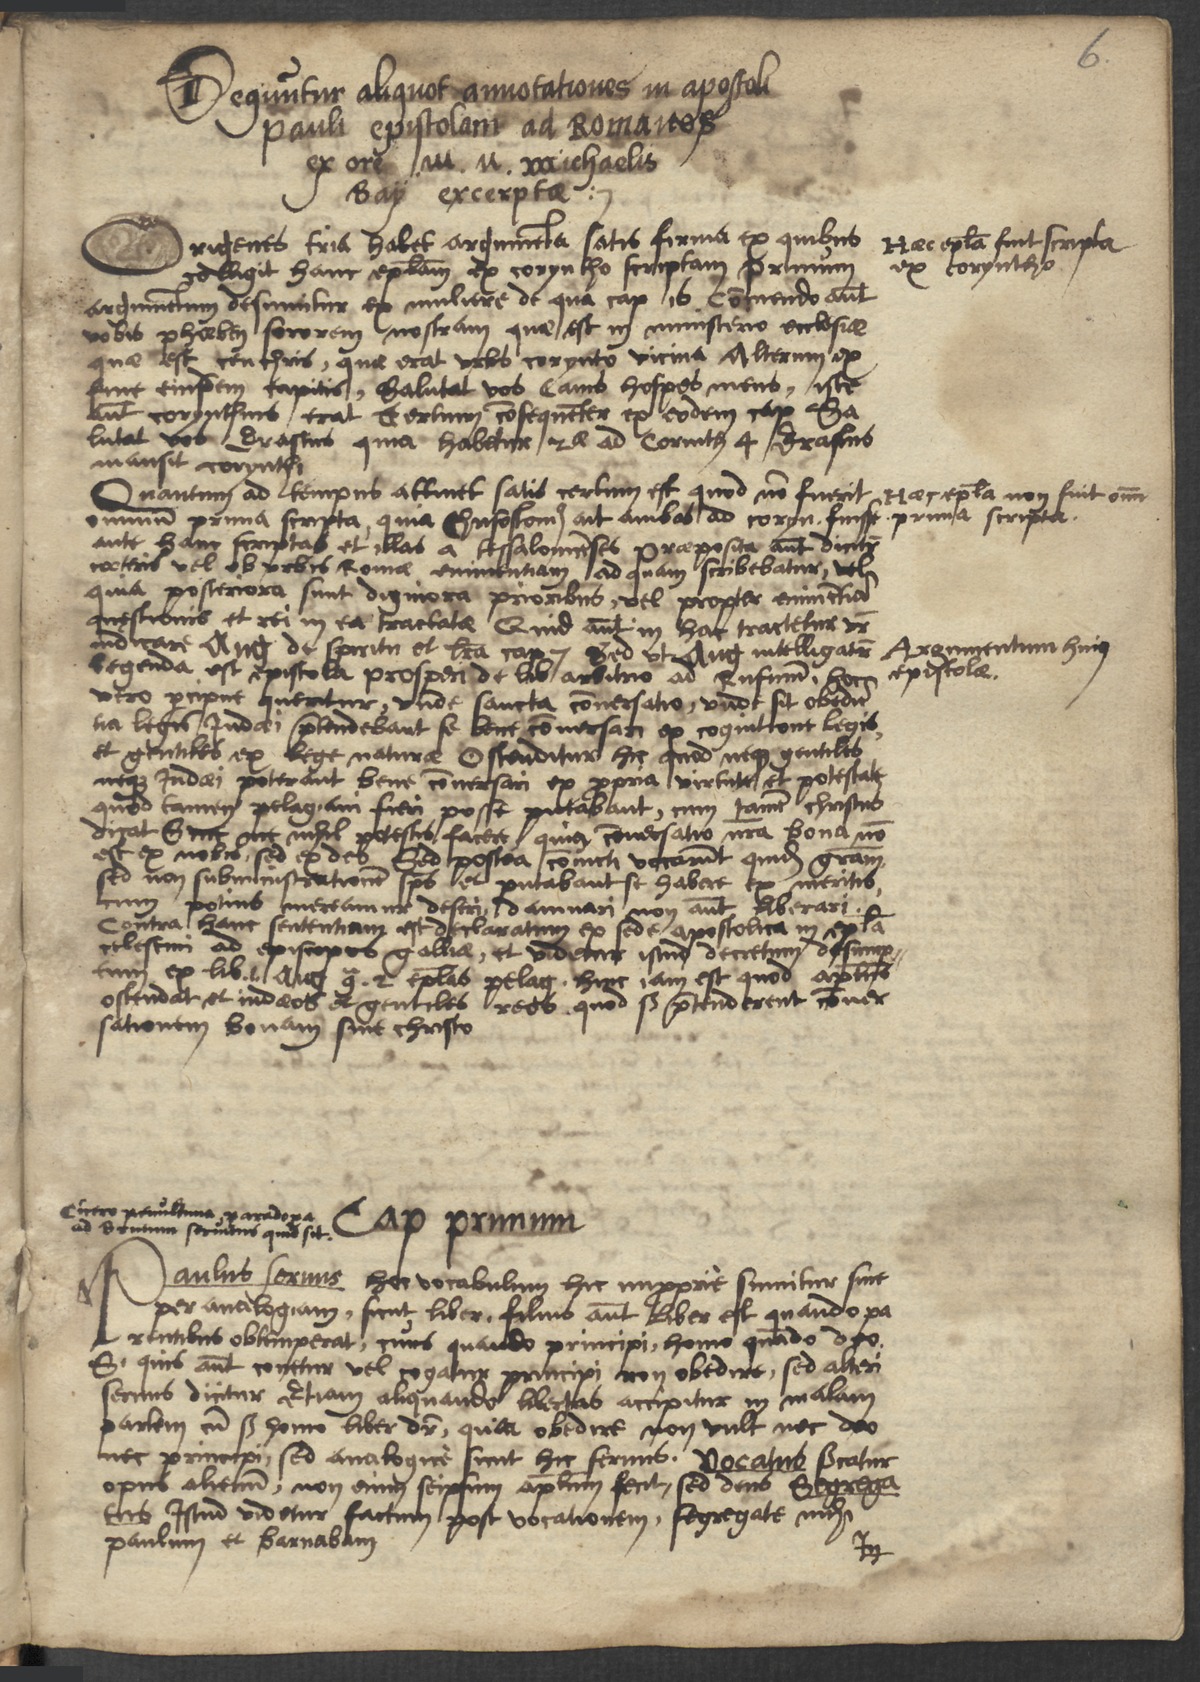 6.
Sequūtur aliquot annotationes in apostoli
pauli epistolam ad Romanos
ex ore M. N. Michaelis
Baij excerptæ :
Origenes tria habet argumēta satis firma ex quibus
colligit hanc ep̄lam ex coryntho scriptam Primum
argumētum desumitur ex muliere de qua cap 16 Cōmendo aūt
vobis phæben sororem nostram quæ est in ministerio ecclesiæ
quæ est cenchris, quæ erat urbs corynto vicina Alterum ex
fine eiusdem capitis, Salutat vos Caius hospes meus, iste
aūt corynthius erat Tertium cōsequēter ex eodem cap Sa
lutat vos Erastus quia habetur 2æ ad Corinth 4 Erastus
mansit corynthi
Hæc ep̄la fuit scripta
ex coryntho
Quantum ad tempus attinet satis certum est quod nō fuerit
omniū prima scripta, quia Chrisostom9 ait ambas ad coryn. fuisse
ante hanc scriptas et illas a tessalonicēses Præposita aūt dicitr
cæteris vel ob urbis Romæ eminentiam ad quam scribebatur, vel
quia posteriora sunt digniora prioribus, vel propter eminētiā
questionis et rei in ea tractatæ Quid aūt in hac tractetur vr̄
indicare Aug de spiritu et lr̄a cap 7 Sed ut Aug intelligatr
legenda est epistola prosperi de lib arbitrio ad Rufinum, hoc
vero p̄cipue queritur, unde sancta cōversatio, unde sit obediē
tia legis Judæi p̄tendebant se bene cōversari ex cognitione legis,
et gentiles ex lege naturæ Ostenditur hic quod neq3 gentiles
neq3 Judæi poterant bene cōversari ex p̄pria virtute et potestate
quod tamen pelagiani fieri posse putabant, cum tamē christus
dicat Sine me nihil potestis facere, quia cōversatio nr̄a bona nō
est ex nobis, sed ex deo Sed postea cōvicti vocarūt quidē grām
sed non subministrationē sp̄s et putabant se habere ex meritis,
cum potius mereamur deseri, damnari non aūt liberari.
Contra hanc sententiam est declaratum ex sede apostolica in ep̄la
celestini ad episcopos galliæ, et videtur istud decretum desump
tum ex lib. 1. Aug q̄. 2 ep̄las pelag. huc iam est quod ap̄lus
ostendat et iudæos et gentiles reos quod si p̄tenderent cōver
sationem bonam sine christo
Hæc ep̄la non fuit oīm
prima scripta.
Argumentum huius
epistolæ.
Cicero penultima paradoxa
ad Brutum servitus quid sit.
Cap primum
Paulus servus hoc vocabulum hic impprie sumitur sive
per analogiam, sicut liber. filius aūt liber est quando pa
rentibus obtemperat, civis quando principi, homo quādo deo.
Si quis aūt conetur vel cogatur principi non obedire, sed alteri
servus dicitur Etiam aliquando libertas accipitur in malam
partem cū sc homo liber dr̄, quia obedire non vult nec deo
nec principi, sed analogice sicut hic servus. Vocatus sicatur
opus alienū, non enim seipsum ap̄lum fecit, sed deus Segrega
tus Istud videtur factum post vocationem, segregate mihi
paulum et barnabam
In